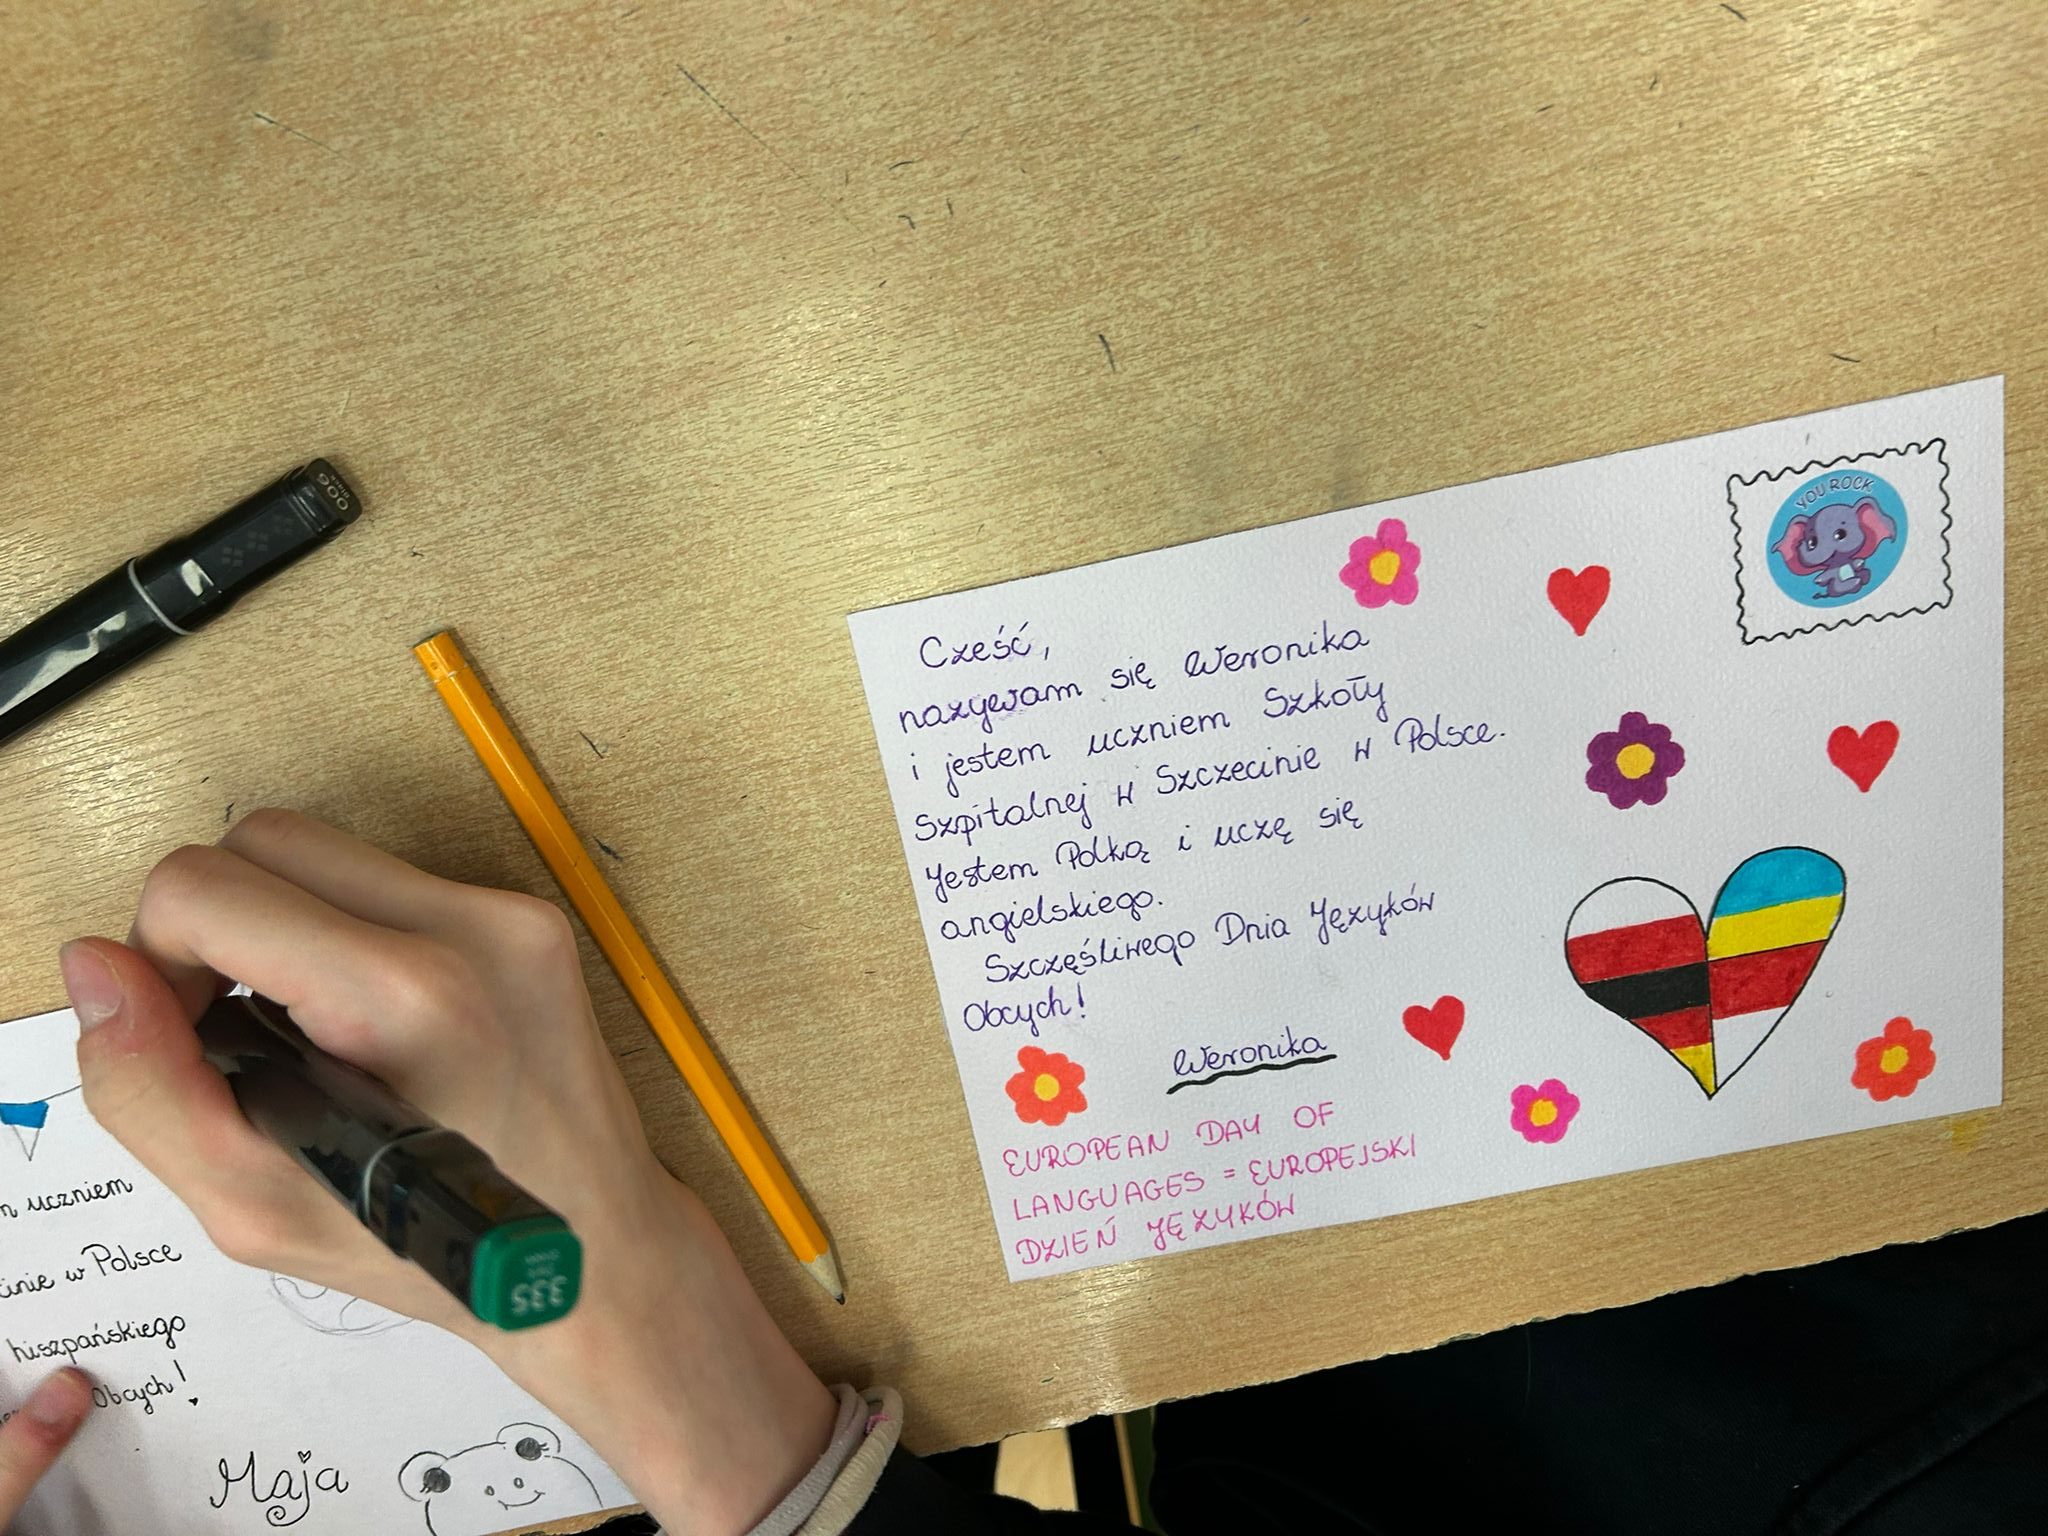 YOU ROCK
Cześć,
nazywam się Weronika
i jestem uczniem Szkoły
Szpitalnej w Szczecinie w Polsce.
Jestem Polką i uczę się
angielskiego.
Szczęśliwego Dnia Języków
Obcych!
Weronika
EUROPEAN DAY OF
LANGUAGES = EUROPEJSKI
DZIEŃ JĘZYKÓW
uczniem
w Polsce
hiszpańskiego
Obcych!
Maja
006
335